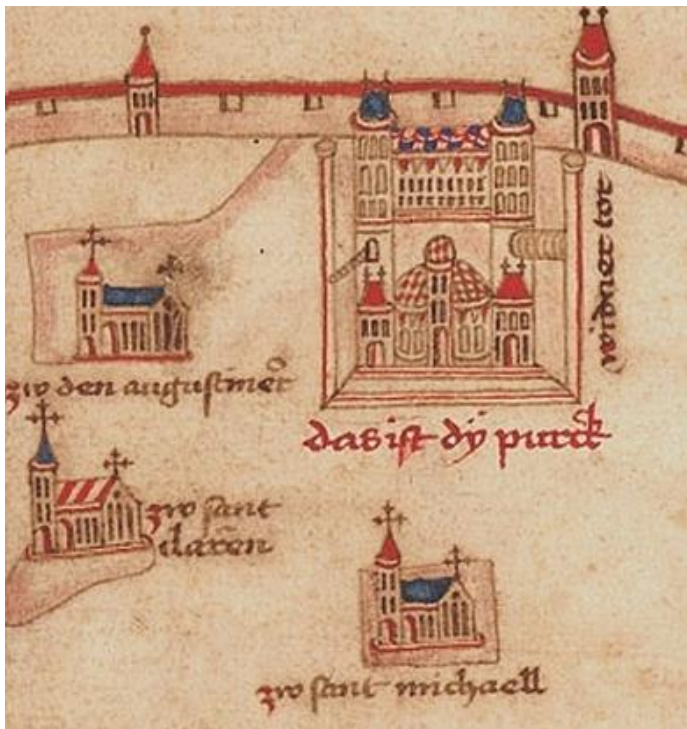 widner tor
zw den augustinern
das ist dÿ purck
zw sant
claren
zw sant michaell